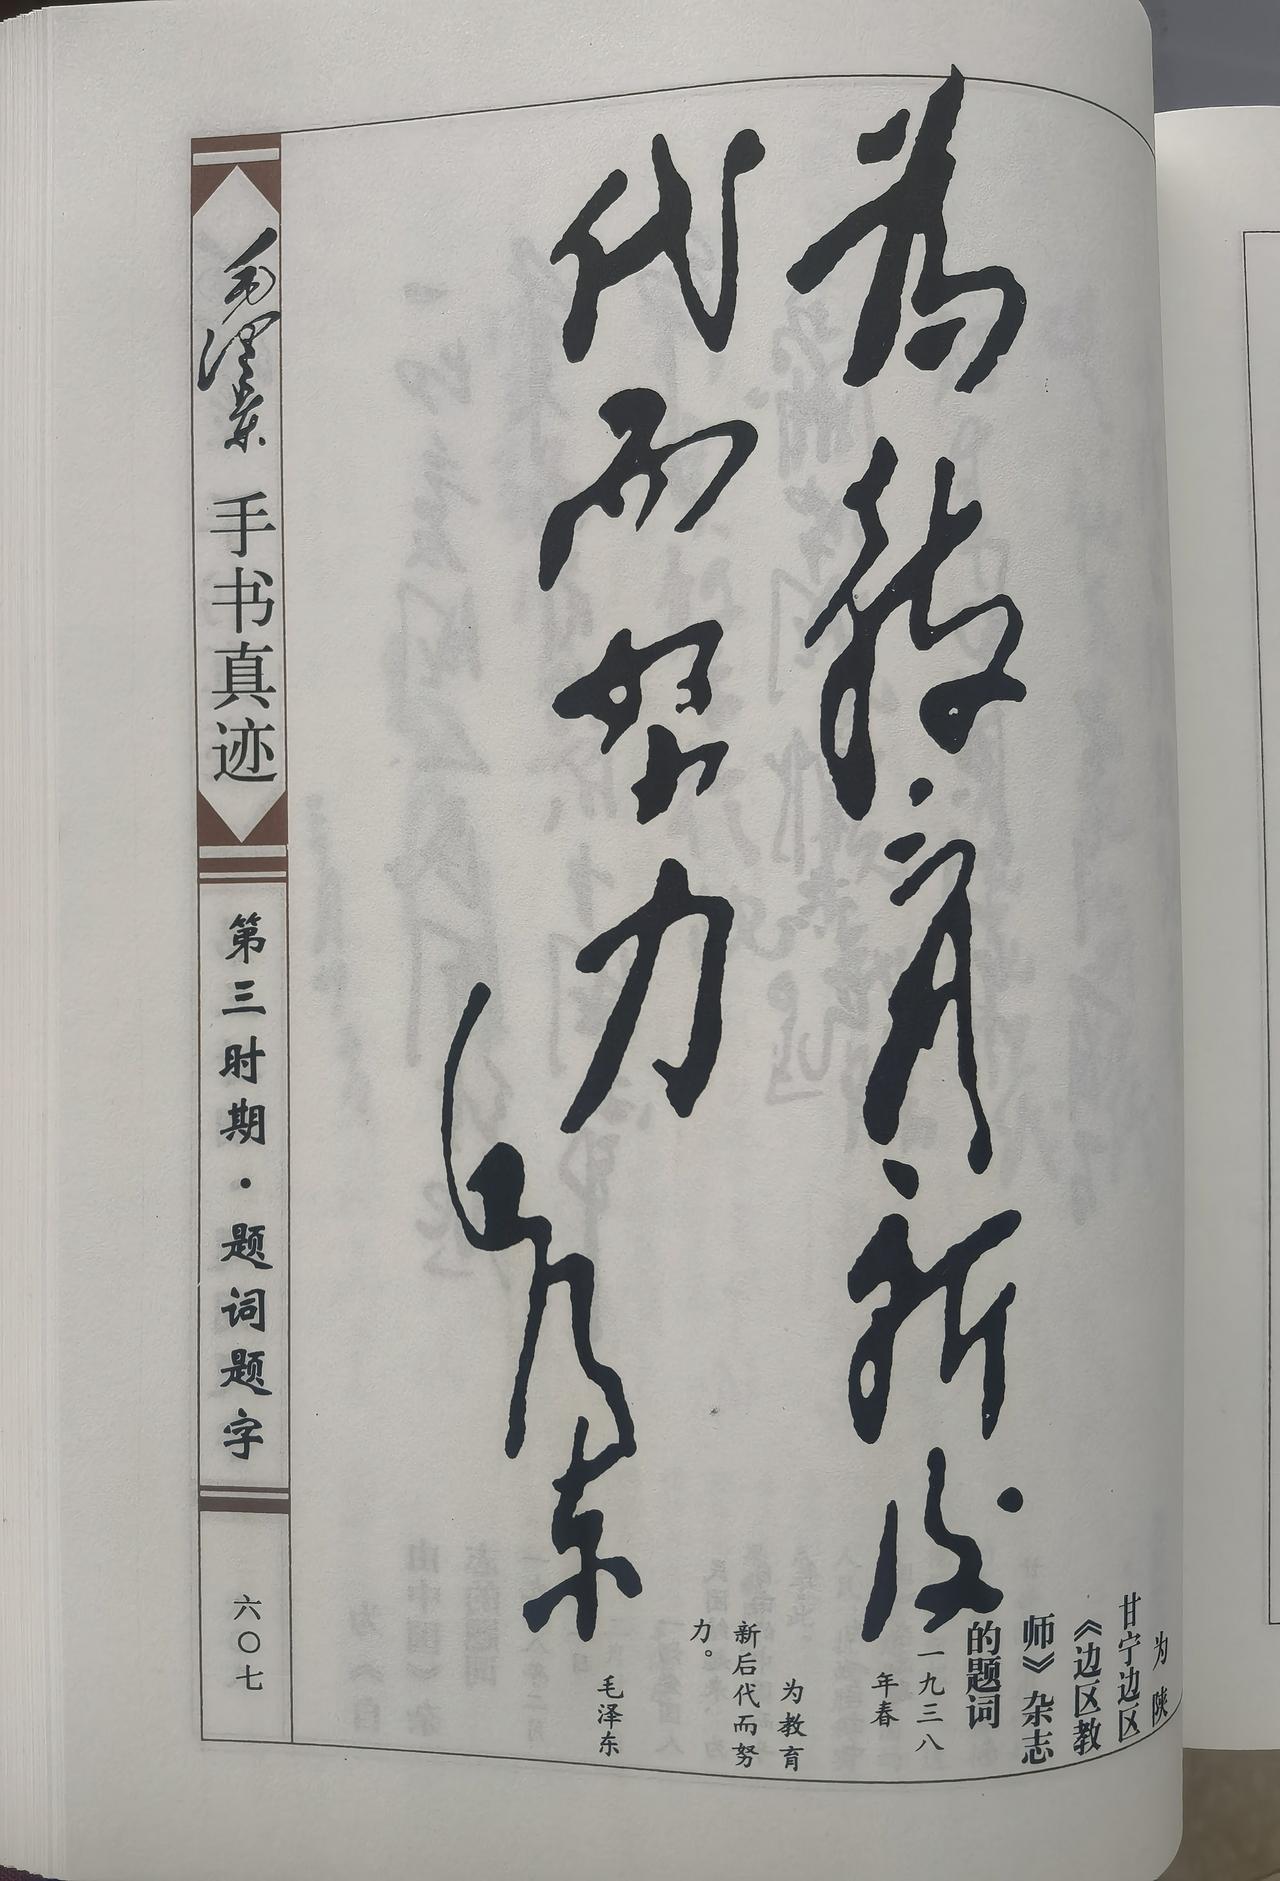 为教育新后
代而努力
毛泽东
为陕
甘宁边区
《边区教
师》杂志
的题词
一九三八
年春
为教育
新后代而努
力。
毛泽东
毛泽东
手书真迹
第三时期·题词题字
六〇七